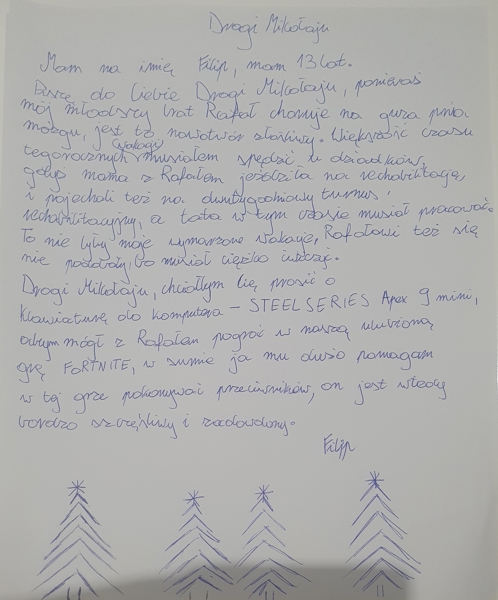 Drogi Mikołaju
Mam na imię Filip, mam 13 lat.
Piszę do Ciebie Drogi Mikołaju, ponieważ
mój młodszy brat Rafał choruje na guza pnia
mózgu, jest to nowotwór złośliwy. Większość czasu
(wakacji)
tegorocznych musiałem spędzić u dziadków,
gdyż mama z Rafałem jeździła na rehabilitację,
i pojechali też na dwutygodniowy turnus
rehabilitacyjny, a tata w tym czasie musiał pracować.
To nie były moje wymarzone wakacje, Rafałowi też się
nie podobały, bo musiał ciężko ćwiczyć.
Drogi Mikołaju, chciałbym Cię prosić o
klawiaturę do komputera – STEELSERIES Apex 9 mini,
abym mógł z Rafałem pograć w naszą ulubioną
grę FORTNITE, w sumie ja mu dużo pomagam
w tej grze pokonywać przeciwników, on jest wtedy
bardzo szczęśliwy i zadowolony.
Filip